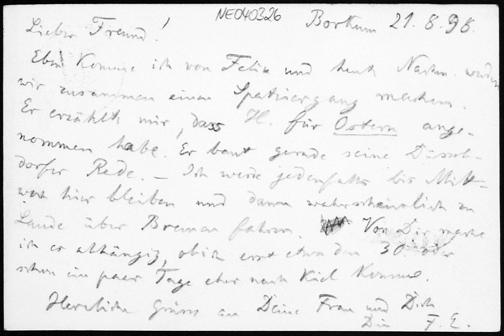 NE040326
Borkum 21.8.98.
Lieber Freund!
Eben komme ich von Felix und heut Nachm. werden
wir zusammen einen Spaziergang machen.
Er erzählt mir, dass H. für Ostern ange-
nommen habe. Er baut gerade seine Düssel-
dorfer Rede. – Ich werde jedenfalls bis Mitt-
woch hier bleiben und dann wahrscheinlich zu
Lande über Bremen fahren. Von Dir mache
ich es abhängig, ob ich erst etwa den 30. oder
schon ein paar Tage eher nach Kiel komme.
Herzliche Grüsse an Deine Frau und Dich
Dein F. E.